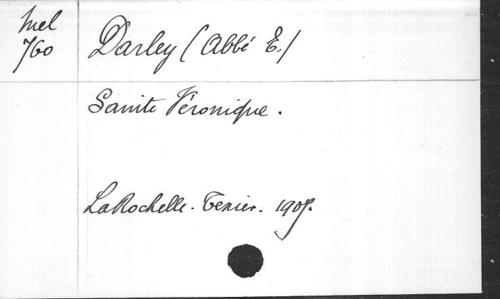 Mel
760
Darley (Abbé E.)
Sainte Véronique.
La Rochelle. Texier. 1907.